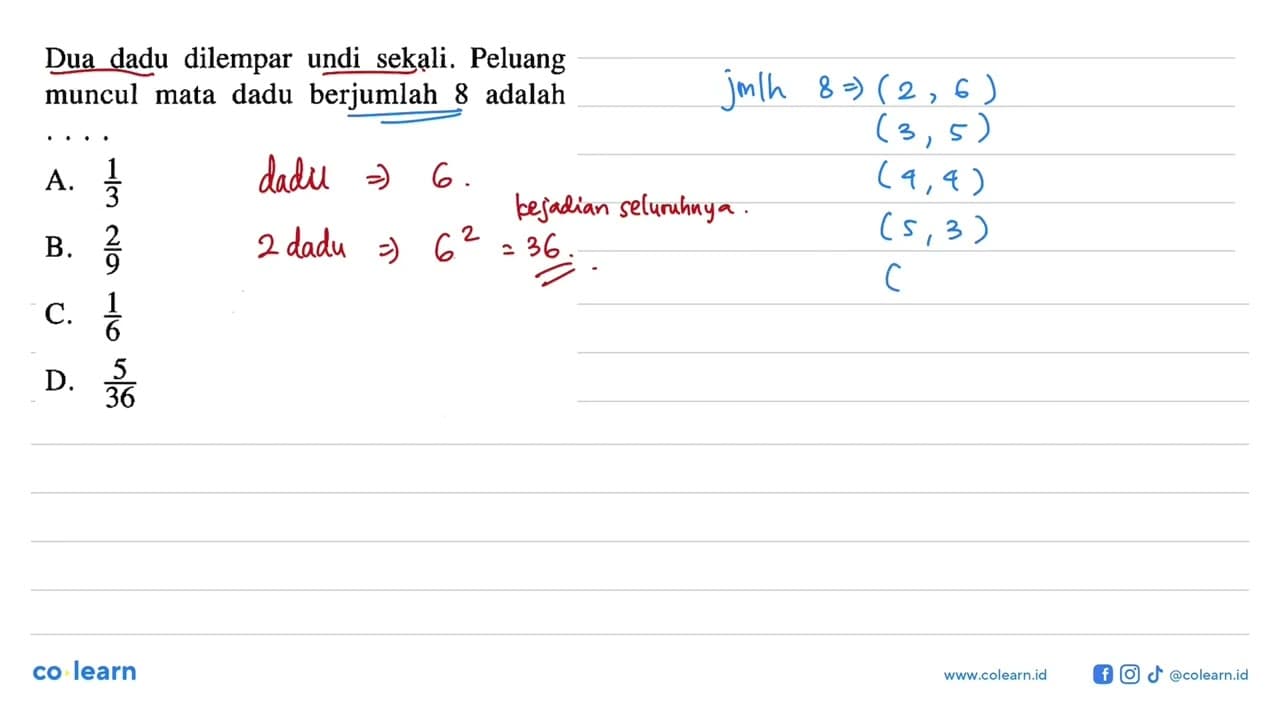 Dua dadu dilempar undi sekali. Peluang
muncul mata dadu berjumlah 8 adalah
. . . .
A. 1/3
B. 2/9
C. 1/6
D. 5/36
dadu ⇒ 6.
kejadian seluruhnya.
2 dadu ⇒ 6² = 36.
jmlh 8 ⇒ (2, 6)
(3, 5)
(4, 4)
(5, 3)
(
co learn
www.colearn.id
@colearn.id